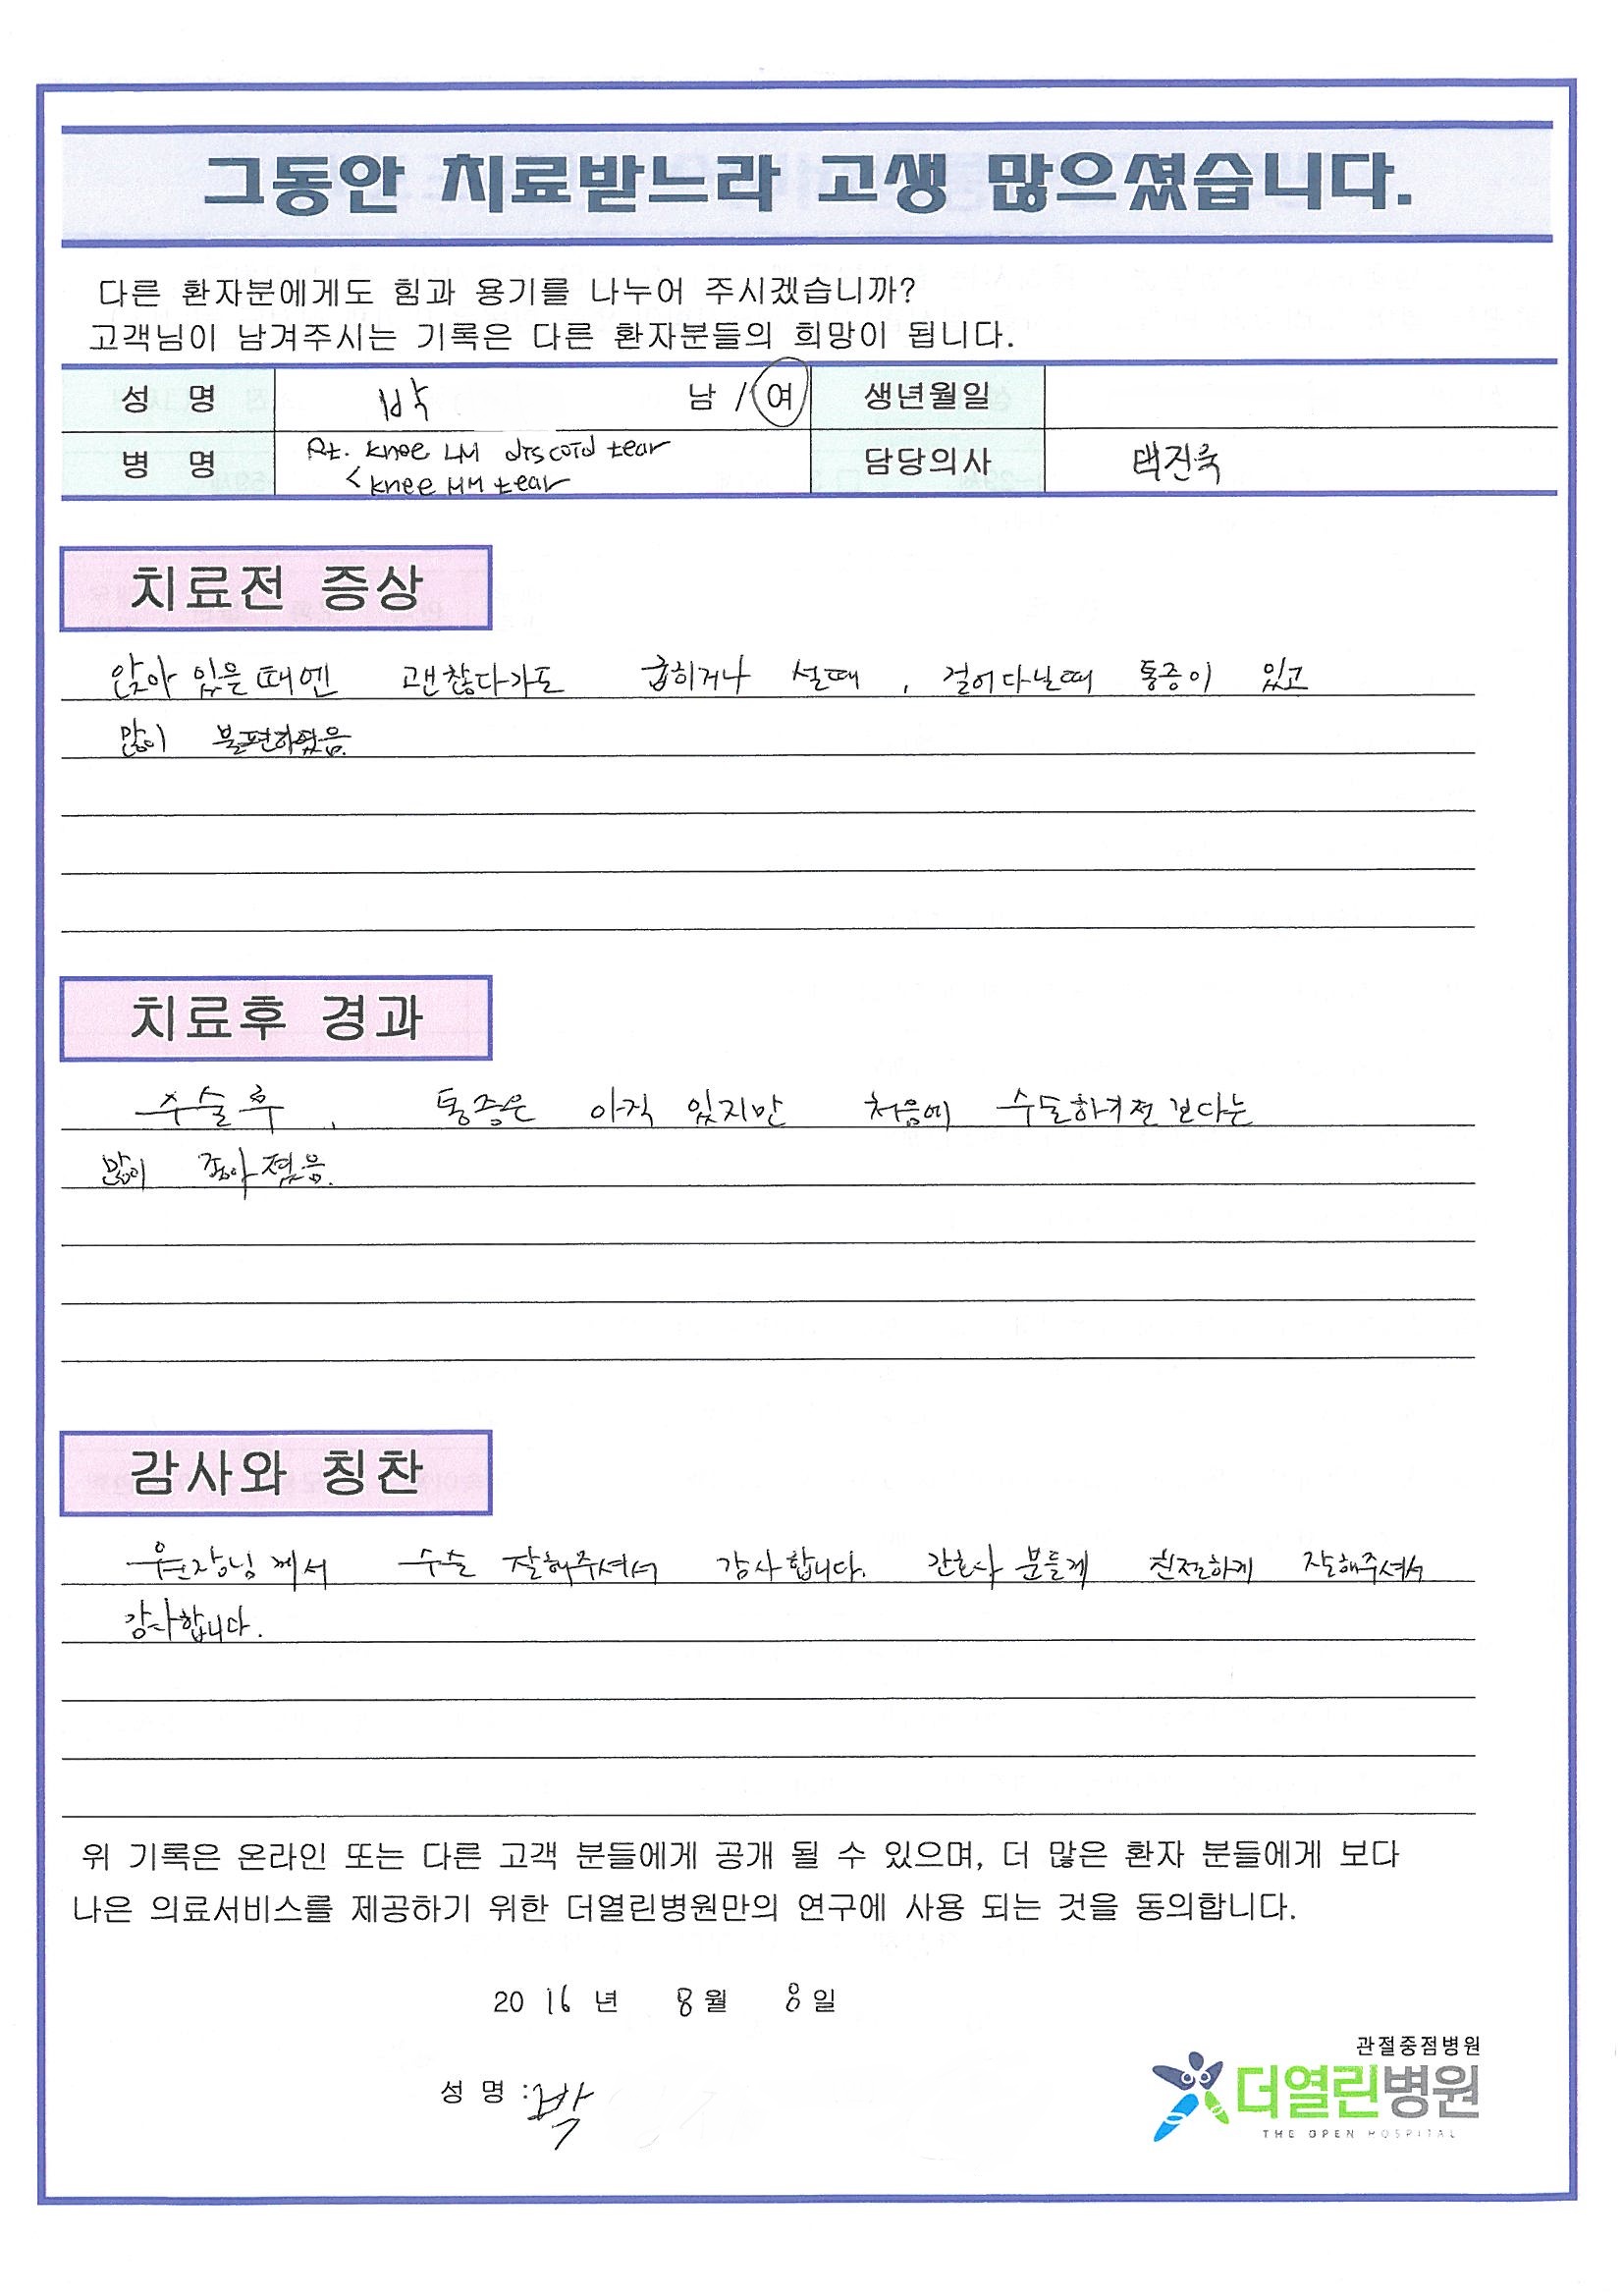 그동안 치료받느라 고생 많으셨습니다.
다른 환자분에게도 힘과 용기를 나누어 주시겠습니까?
고객님이 남겨주시는 기록은 다른 환자분들의 희망이 됩니다.
성 명 박 남 / 여 생년월일
병 명 Rt. knee LM discoid tear 담당의사 택진욱
< knee MM tear
치료전 증상
앉아 있을때엔 괜찮다가도 급히거나 설때, 걸어다닐때 통증이 있고
많이 불편하였음.
치료후 경과
수술후, 통증은 아직 있지만 처음에 수술하기전 보다는
많이 좋아졌음.
감사와 칭찬
원장님께서 수술 잘해주셔서 감사합니다. 간호사 분들께 친절하게 잘해주셔서
감사합니다.
위 기록은 온라인 또는 다른 고객 분들에게 공개 될 수 있으며, 더 많은 환자 분들에게 보다
나은 의료서비스를 제공하기 위한 더열린병원만의 연구에 사용 되는 것을 동의합니다.
2016년 8월 8일
성 명 : 박
관절중점병원
더열린병원
THE OPEN HOSPITAL